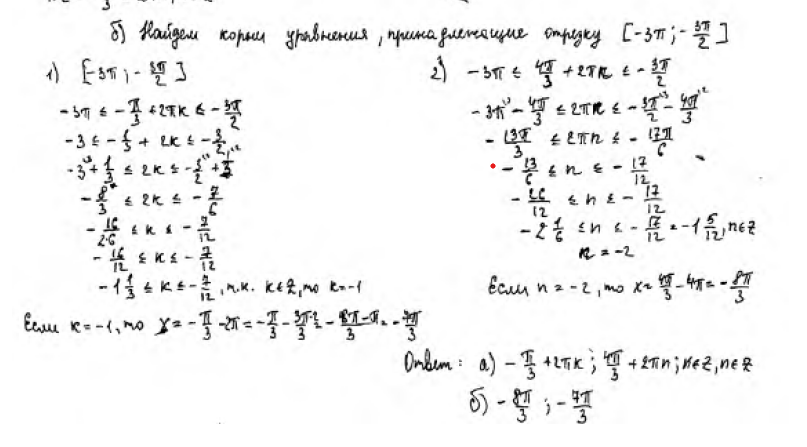 б) Найдем корни уравнения, принадлежащие отрезку [-3π; -3π/2]
1) [-3π; -3π/2]
-3π ≤ -π/3 + 2πk ≤ -3π/2
-3 ≤ -1/3 + 2k ≤ -3/2
-3 + 1/3 ≤ 2k ≤ -3/2 + 1/3
-8/3 ≤ 2k ≤ -7/6
-16/2·6 ≤ k ≤ -7/12
-16/12 ≤ k ≤ -7/12
-1 1/3 ≤ k ≤ -7/12, т.к. k∈Z, то k=-1
Если k=-1, то x = -π/3 - 2π = -π/3 - 3π·2/3 = -8π-π/3 = -7π/3
2) -3π ≤ 4π/3 + 2πn ≤ -3π/2
-3π - 4π/3 ≤ 2πn ≤ -3π/2 - 4π/3
-13π/3 ≤ 2πn ≤ -17π/6
-13/6 ≤ n ≤ -17/12
-26/12 ≤ n ≤ -17/12
-2 1/6 ≤ n ≤ -17/12 = -1 5/12, n∈Z
n = -2
Если n = -2, то x = 4π/3 - 4π = -8π/3
Ответ: а) -π/3 + 2πk; 4π/3 + 2πn; k∈Z, n∈Z
б) -8π/3; -7π/3